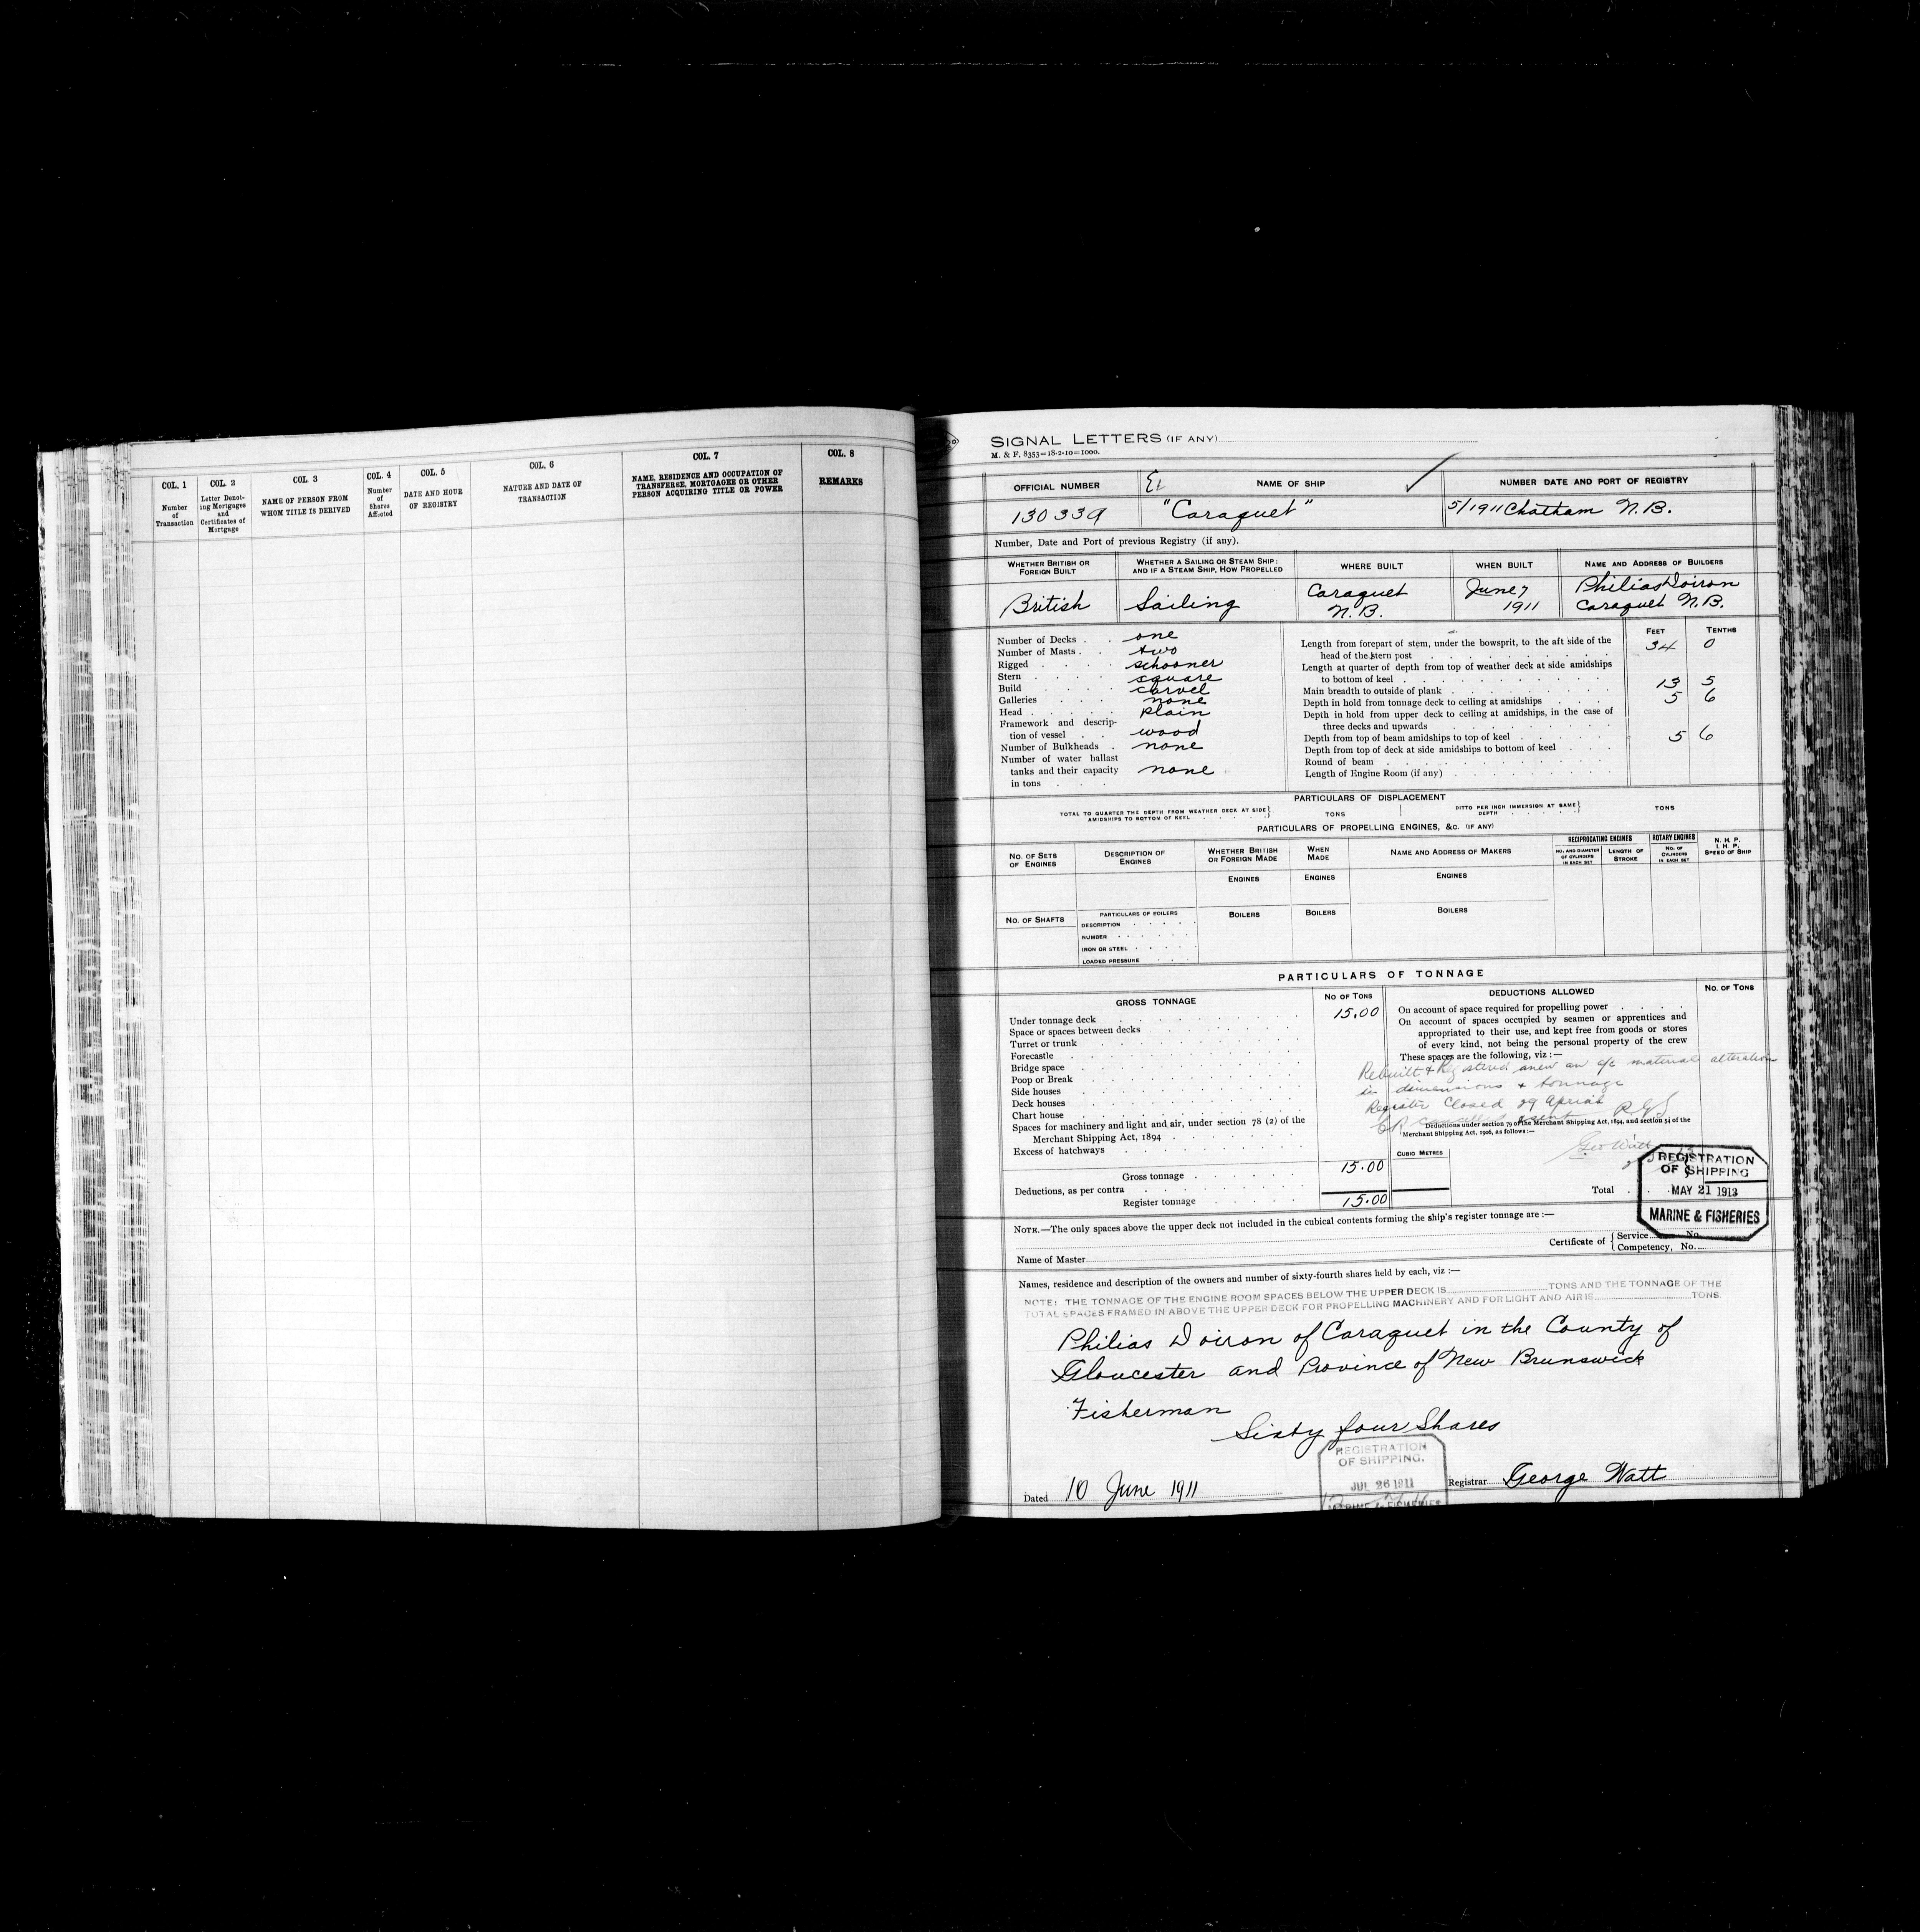 COL. 1
Number
of
Transaction
COL. 2
Letter Denot-
ing Mortgages
and
Certificates of
Mortgage
COL. 3
NAME OF PERSON FROM
WHOM TITLE IS DERIVED
COL. 4
Number
of
Shares
Affected
COL. 5
DATE AND HOUR
OF REGISTRY
COL. 6
NATURE AND DATE OF
TRANSACTION
COL. 7
NAME, RESIDENCE AND OCCUPATION OF
TRANSFEREE, MORTGAGEE OR OTHER
PERSON ACQUIRING TITLE OR POWER
COL. 8
REMARKS
SIGNAL LETTERS (IF ANY)
M. & F. 8353=18-2-10=1000.
OFFICIAL NUMBER
130339
NAME OF SHIP
"Caraquet"
NUMBER DATE AND PORT OF REGISTRY
5/1911 Chatham N.B.
Number, Date and Port of previous Registry (if any).
WHETHER BRITISH OR
FOREIGN BUILT
British
WHETHER A SAILING OR STEAM SHIP:
AND IF A STEAM SHIP, HOW PROPELLED
Sailing
WHERE BUILT
Caraquet
N.B.
WHEN BUILT
June 7
1911
NAME AND ADDRESS OF BUILDERS
Philias Doiron
Caraquet N.B.
Number of Decks . . one
Number of Masts . . two
Rigged . . . . schooner
Stern . . . . square
Build . . . . carvel
Galleries . . . none
Head . . . . . plain
Framework and descrip-
tion of vessel . . wood
Number of Bulkheads . none
Number of water ballast
tanks and their capacity none
in tons . . .
FEET TENTHS
Length from forepart of stem, under the bowsprit, to the aft side of the
head of the stern post 34 0
Length at quarter of depth from top of weather deck at side amidships
to bottom of keel
Main breadth to outside of plank 13 5
Depth in hold from tonnage deck to ceiling at amidships 5 6
Depth in hold from upper deck to ceiling at amidships, in the case of
three decks and upwards
Depth from top of beam amidships to top of keel 5 6
Depth from top of deck at side amidships to bottom of keel
Round of beam
Length of Engine Room (if any)
PARTICULARS OF DISPLACEMENT
TOTAL TO QUARTER THE DEPTH FROM WEATHER DECK AT SIDE
AMIDSHIPS TO BOTTOM OF KEEL
TONS
DITTO PER INCH IMMERSION AT SAME
DEPTH
TONS
PARTICULARS OF PROPELLING ENGINES, &C. (IF ANY)
NO. OF SETS
OF ENGINES
DESCRIPTION OF
ENGINES
WHETHER BRITISH
OR FOREIGN MADE
WHEN
MADE
NAME AND ADDRESS OF MAKERS
RECIPROCATING ENGINES
NO. AND DIAMETER
OF CYLINDERS
IN EACH SET
LENGTH OF
STROKE
ROTARY ENGINES
NO. OF
CYLINDERS
IN EACH SET
N. H. P.
I. H. P.
SPEED OF SHIP
ENGINES
ENGINES
ENGINES
NO. OF SHAFTS
PARTICULARS OF BOILERS
DESCRIPTION
NUMBER
IRON OR STEEL
LOADED PRESSURE
BOILERS
BOILERS
BOILERS
PARTICULARS OF TONNAGE
GROSS TONNAGE
NO OF TONS
Under tonnage deck 15.00
Space or spaces between decks
Turret or trunk
Forecastle
Bridge space
Poop or Break
Side houses
Deck houses
Chart house
Spaces for machinery and light and air, under section 78 (2) of the
Merchant Shipping Act, 1894
Excess of hatchways
Gross tonnage 15.00
Deductions, as per contra
Register tonnage 15.00
CUBIC METRES
DEDUCTIONS ALLOWED
NO. OF TONS
On account of space required for propelling power
On account of spaces occupied by seamen or apprentices and
appropriated to their use, and kept free from goods or stores
of every kind, not being the personal property of the crew
These spaces are the following, viz :—
Rebuilt & Registered anew on a/c material alteration
in dimensions & tonnage
Register Closed 29 April
Deductions under section 79 of the Merchant Shipping Act, 1894, and section 54 of the
Merchant Shipping Act, 1906, as follows :—
Geo Watt
Total
REGISTRATION
OF SHIPPING
MAY 21 1913
MARINE & FISHERIES
NOTE.—The only spaces above the upper deck not included in the cubical contents forming the ship's register tonnage are :—
Name of Master
Certificate of { Service No.
Competency, No.
Names, residence and description of the owners and number of sixty-fourth shares held by each, viz :—
NOTE: THE TONNAGE OF THE ENGINE ROOM SPACES BELOW THE UPPER DECK IS TONS AND THE TONNAGE OF THE
TOTAL SPACES FRAMED IN ABOVE THE UPPER DECK FOR PROPELLING MACHINERY AND FOR LIGHT AND AIR IS TONS.
Philias Doiron of Caraquet in the County of
Gloucester and Province of New Brunswick
Fisherman
Sixty four Shares
REGISTRATION
OF SHIPPING.
JUL 26 1911
MARINE & FISHERIES
Dated 10 June 1911
Registrar George Watt